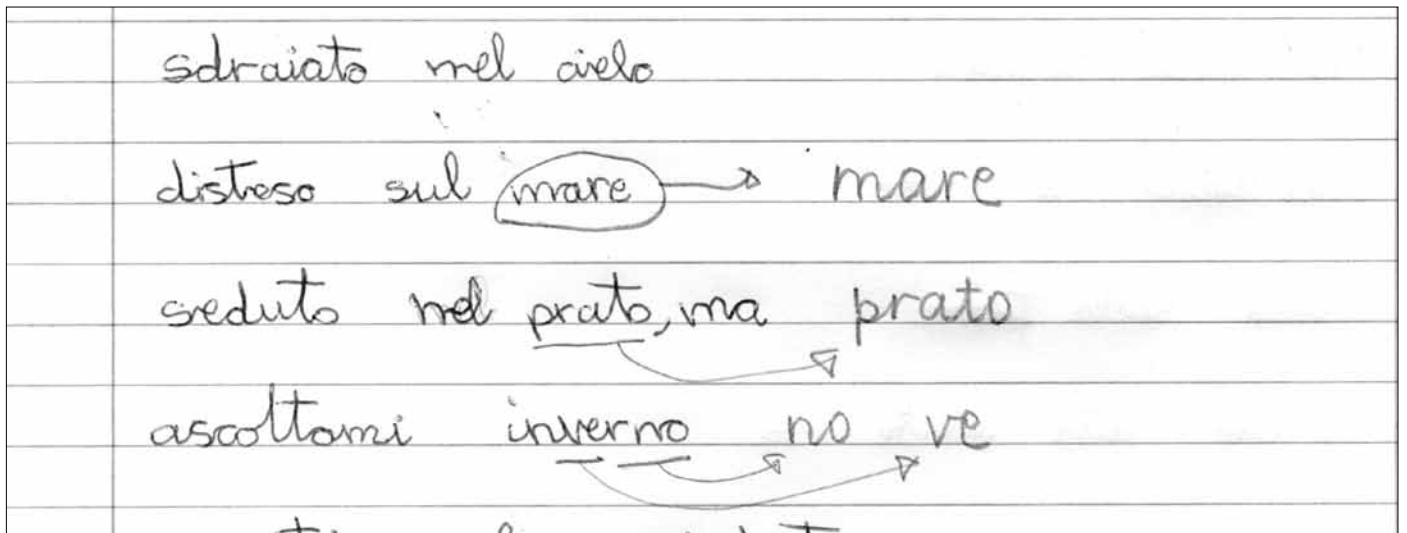 sdraiato nel cielo
disteso sul mare → mare
seduto nel prato, ma prato
ascoltami inverno no ve